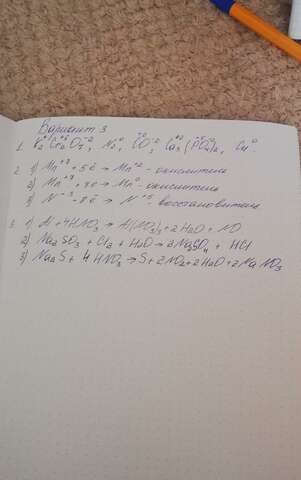 Вариант 3
1. K₂⁺¹Cr₂⁺⁶O₇⁻², N₂⁰, CO⁻², Ca₃⁺²(PO₄)₂, Cu⁰.
2. 1) Mn⁺⁷ + 5ē → Mn⁺² - окислитель
2) Mn⁺⁴ + 4ē → Mn⁰ - окислитель
3) N⁻³ - 8ē → N⁺⁵ - восстановитель
3. 1) Al + 4HNO₃ → Al(NO₃)₃ + 2H₂O + NO
2) Na₂SO₃ + Cl₂ + H₂O → 2Na₂SO₄ + HCl
3) Na₂S + 4HNO₃ → S + 2NO₂ + 2H₂O + 2NaNO₃